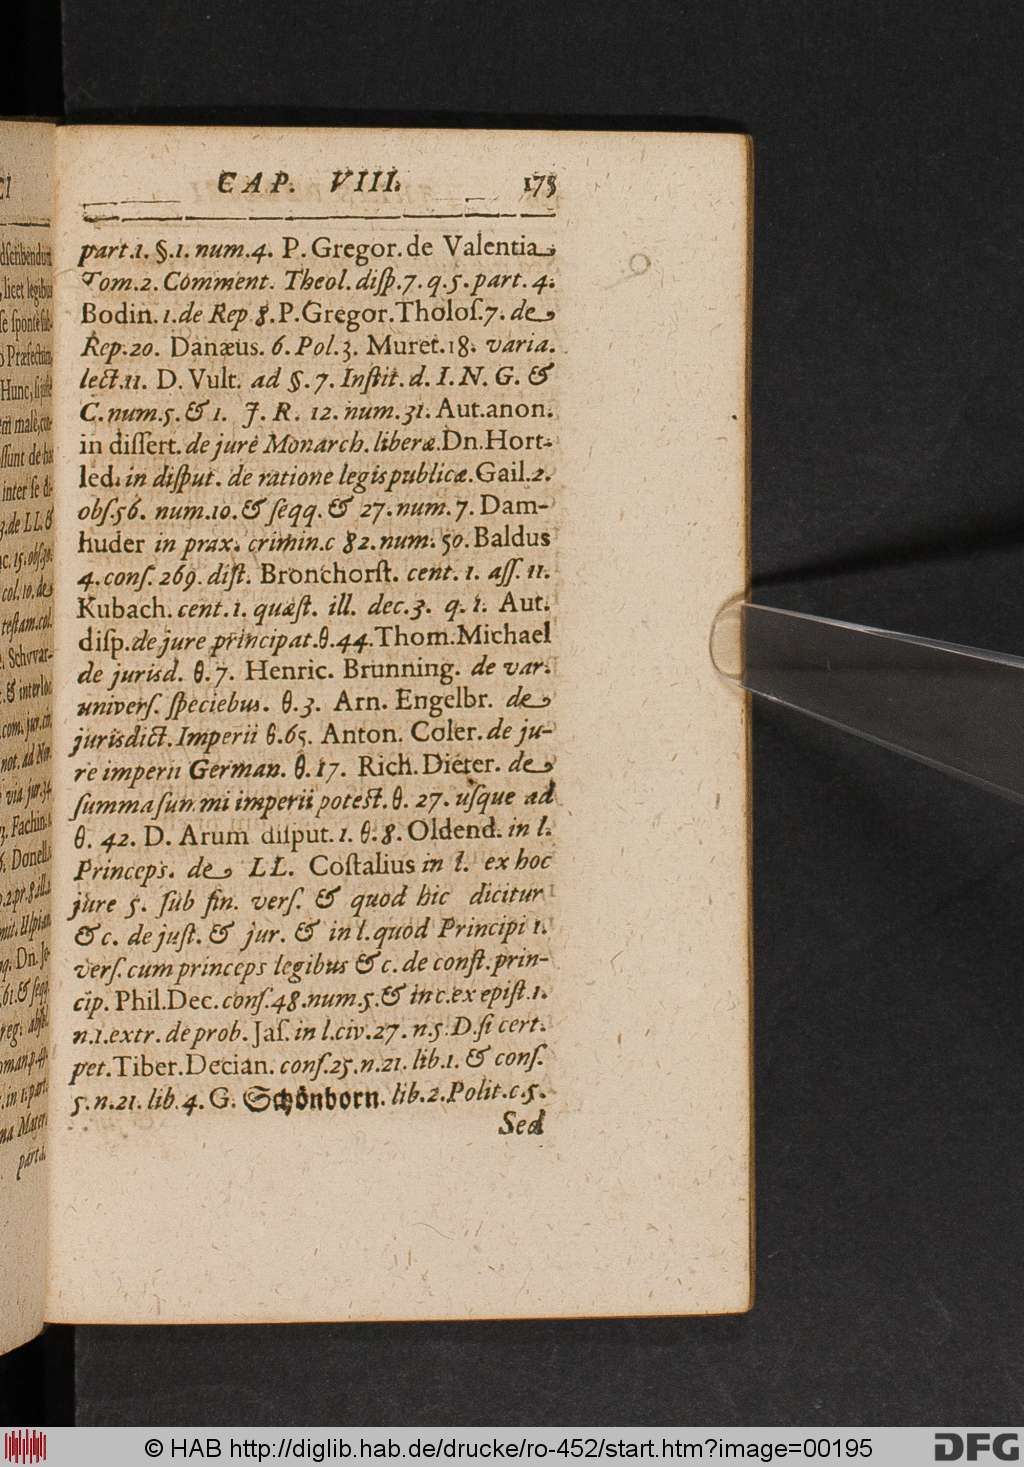 CAP. VIII. 175
part.1. §.1. num.4. P. Gregor. de Valentia
Tom.2. Comment. Theol. disp.7. q.5. part. 4.
Bodin. 1.de Rep 8.P.Gregor.Tholos.7. de
Rep.20. Danæus. 6. Pol.3. Muret.18. varia.
lect.11. D. Vult. ad §. 7. Instit. d. I. N. G. &
C. num.5. & 1. J. R. 12. num.31. Aut.anon.
in dissert. de jure Monarch. liberæ.Dn.Hort-
led. in disput. de ratione legis publicæ.Gail.2.
obs.56. num.10. & seqq. & 27. num. 7. Dam-
huder in prax. crimin.c 82. num. 50. Baldus
4. cons. 269. dist. Bronchorst. cent. 1. ass. 11.
Kubach. cent. 1. quæst. ill. dec.3. q. 1. Aut.
disp. de jure principat.θ.44.Thom.Michael
de jurisd. θ.7. Henric. Brunning. de var.
univers. speciebus. θ.3. Arn. Engelbr. de
jurisdict. Imperii θ.65. Anton. Coler. de ju-
re imperii German. θ. 17. Rich. Dieter. de
summa summi imperii potest. θ. 27. usque ad
θ. 42. D. Arum disput. 1. θ.8. Oldend. in l.
Princeps. de LL. Costalius in l. ex hoc
jure 5. sub fin. vers. & quod hic dicitur
&c. de just. & jur. & in l. quod Principi 1.
vers. cum princeps legibus &c. de const. prin-
cip. Phil.Dec. cons.48.num.5.& in c.ex epist.1.
n.1.extr. de prob. Jas. in l.civ.27. n.5. D.si cert.
pet.Tiber.Decian. cons.25.n.21. lib.1. & cons.
5. n.21. lib. 4. G. Schönborn. lib.2.Polit.c.5.
Sed
© HAB http://diglib.hab.de/drucke/ro-452/start.htm?image=00195
DFG